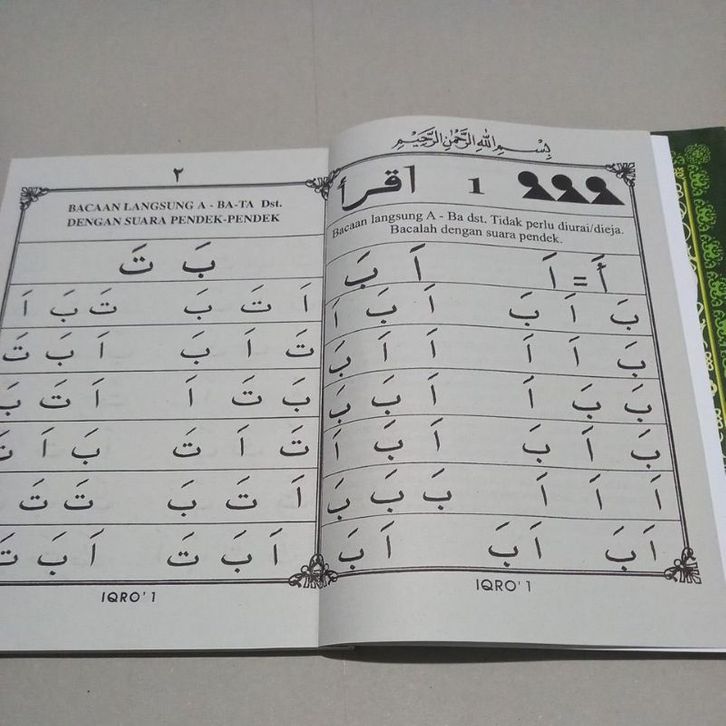 بِسْمِ اللهِ الرَّحْمٰنِ الرَّحِيْمِ
اقرأ 1
Bacaan langsung A - Ba dst. Tidak perlu diurai/dieja.
Bacalah dengan suara pendek.
أَ = اَ اَ بَ
بَ اَ بَ اَ بَ اَ
بَ اَ اَ اَ اَ بَ
بَ بَ اَ اَ بَ بَ
بَ اَ بَ اَ بَ اَ
اَ اَ اَ بَ بَ بَ
اَ بَ اَ بَ اَ بَ
IQRO' 1
٢
BACAAN LANGSUNG A - BA-TA Dst.
DENGAN SUARA PENDEK-PENDEK
بَ تَ
اَ تَ بَ تَ بَ اَ
تَ اَ بَ اَ بَ تَ
بَ تَ اَ اَ تَ بَ
تَ اَ تَ بَ اَ تَ
اَ تَ بَ تَ تَ
اَ بَ تَ اَ بَ تَ
IQRO' 1